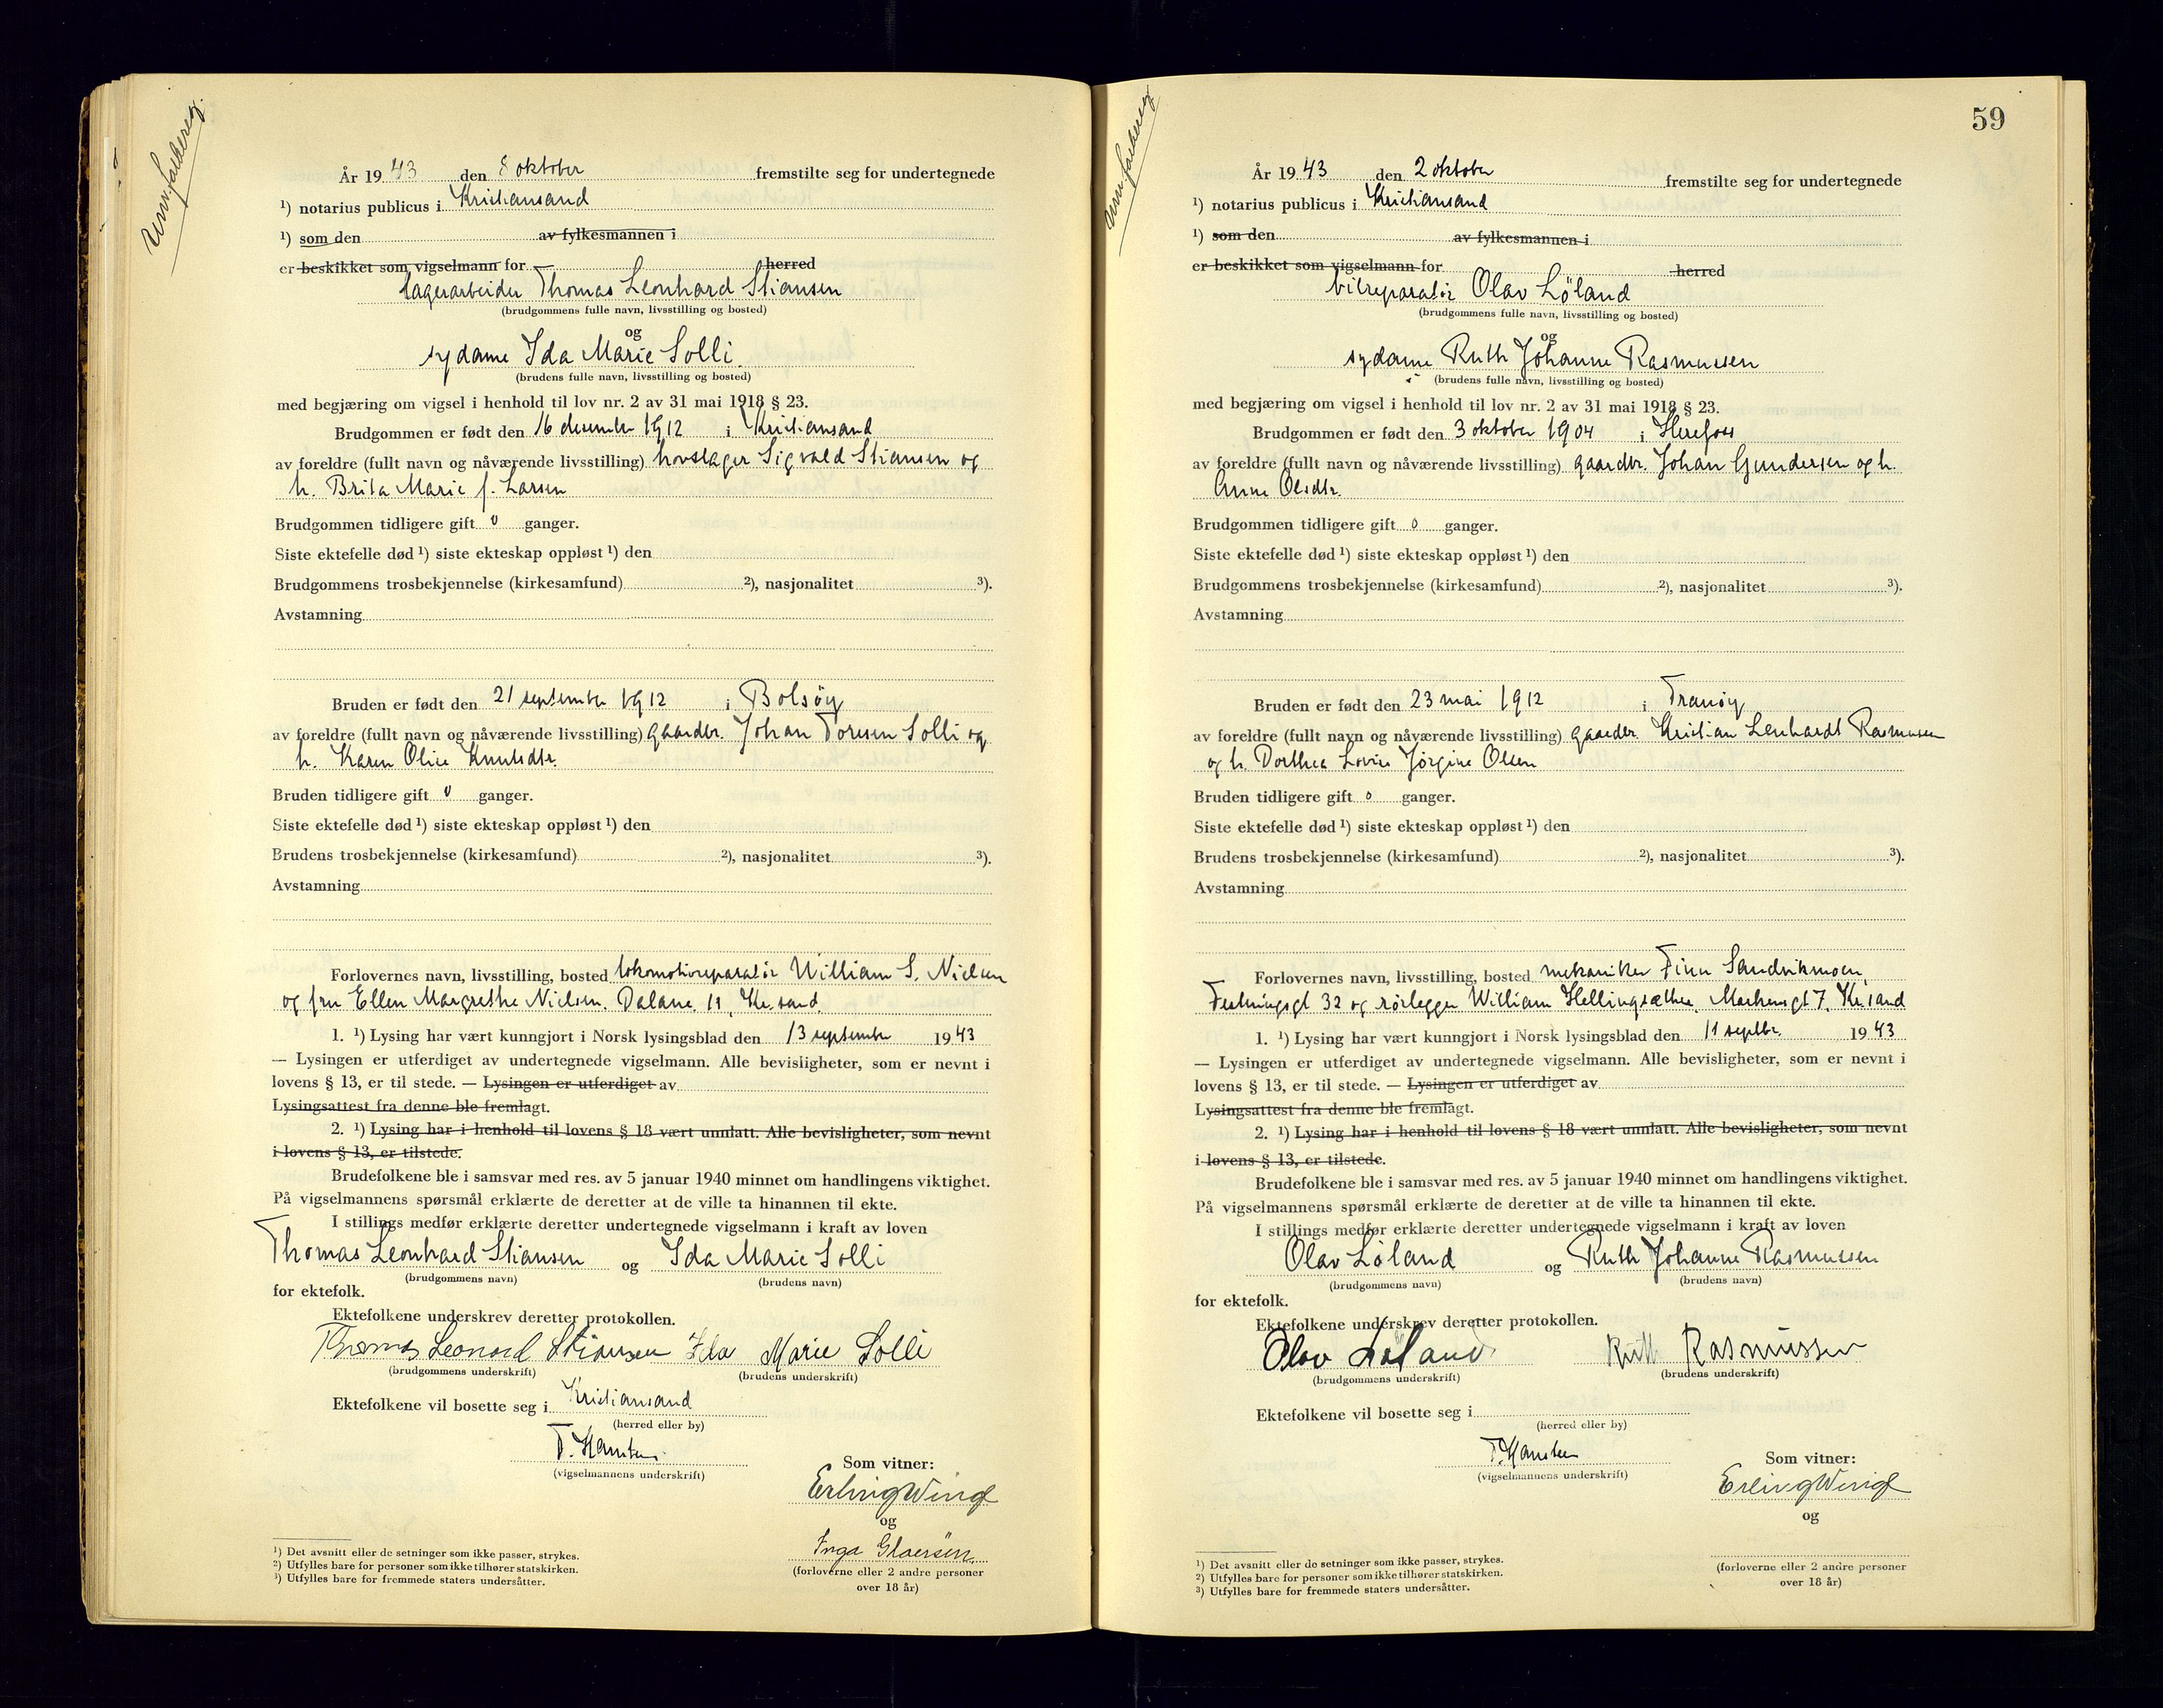 År 1943 den 8 oktober fremstilte seg for undertegnede
¹) notarius publicus i Kristiansand
¹) som den av fylkesmannen i
er beskikket som vigselmann for herred
lagerarbeider Thomas Leonhard Stiansen
(brudgommens fulle navn, livsstilling og bosted)
og
sydame Ida Marie Solli
(brudens fulle navn, livsstilling og bosted)
med begjæring om vigsel i henhold til lov nr. 2 av 31 mai 1918 § 23.
Brudgommen er født den 16 desember 1912 i Kristiansand
av foreldre (fullt navn og nåværende livsstilling) hovslager Sigvald Stiansen og
h. Brita Marie f. Larsen
Brudgommen tidligere gift 0 ganger.
Siste ektefelle død ¹) siste ekteskap oppløst ¹) den
Brudgommens trosbekjennelse (kirkesamfund) ²), nasjonalitet ³).
Avstamning
Bruden er født den 21 september 1912 i Bolsöy
av foreldre (fullt navn og nåværende livsstilling) gaardbr. Johan Toresen Solli og
h. Karen Oline Knutsdtr.
Bruden tidligere gift 0 ganger.
Siste ektefelle død ¹) siste ekteskap oppløst ¹) den
Brudens trosbekjennelse (kirkesamfund) ²), nasjonalitet ³).
Avstamning
Forlovernes navn, livsstilling, bosted lokomotivreparatör William S. Nielsen
og fru Ellen Margrethe Nielsen. Dalane 11, Kr.sand.
1. ¹) Lysing har vært kunngjort i Norsk lysingsblad den 13 september 1943
— Lysingen er utferdiget av undertegnede vigselmann. Alle bevisligheter, som er nevnt i
lovens § 13, er til stede. — Lysingen er utferdiget av
Lysingsattest fra denne ble fremlagt.
2. ¹) Lysing har i henhold til lovens § 18 vært unnlatt. Alle bevisligheter, som nevnt
i lovens § 13, er tilstede.
Brudefolkene ble i samsvar med res. av 5 januar 1940 minnet om handlingens viktighet.
På vigselmannens spørsmål erklærte de deretter at de ville ta hinannen til ekte.
I stillings medfør erklærte deretter undertegnede vigselmann i kraft av loven
Thomas Leonhard Stiansen og Ida Marie Solli
(brudgommens navn) (brudens navn)
for ektefolk.
Ektefolkene underskrev deretter protokollen.
Thomas Leonard Stiansen Ida Marie Solli
(brudgommens underskrift) (brudens underskrift)
Ektefolkene vil bosette seg i Kristiansand
(herred eller by)
T. Hansteen
(vigselmannens underskrift)
Som vitner:
Erling Wind
og
Inga Glaersen
(forloverne eller 2 andre personer
over 18 år)
¹) Det avsnitt eller de setninger som ikke passer, strykes.
²) Utfylles bare for personer som ikke tilhører statskirken.
³) Utfylles bare for fremmede staters undersåtter.
59
År 1943 den 2 oktober fremstilte seg for undertegnede
¹) notarius publicus i Kristiansand
¹) som den av fylkesmannen i
er beskikket som vigselmann for herred
bilreparatör Olav Löland
(brudgommens fulle navn, livsstilling og bosted)
og
sydame Ruth Johanne Rasmussen
(brudens fulle navn, livsstilling og bosted)
med begjæring om vigsel i henhold til lov nr. 2 av 31 mai 1918 § 23.
Brudgommen er født den 3 oktober 1904 i Herefoss
av foreldre (fullt navn og nåværende livsstilling) gaardbr. Johan Gundersen og h.
Anne Olsdtr.
Brudgommen tidligere gift 0 ganger.
Siste ektefelle død ¹) siste ekteskap oppløst ¹) den
Brudgommens trosbekjennelse (kirkesamfund) ²), nasjonalitet ³).
Avstamning
Bruden er født den 23 mai 1912 i Tranöy
av foreldre (fullt navn og nåværende livsstilling) gaardbr. Kristian Lenhardt Rasmussen
og h. Dorthea Jörgine Olsen
Bruden tidligere gift 0 ganger.
Siste ektefelle død ¹) siste ekteskap oppløst ¹) den
Brudens trosbekjennelse (kirkesamfund) ²), nasjonalitet ³).
Avstamning
Forlovernes navn, livsstilling, bosted mekaniker Finn Sandvikmoen,
Festningsgt 32 og rörlegger William Hellingsæther, Markensgt 7. Kr.sand
1. ¹) Lysing har vært kunngjort i Norsk lysingsblad den 11 septbr. 1943
— Lysingen er utferdiget av undertegnede vigselmann. Alle bevisligheter, som er nevnt i
lovens § 13, er til stede. — Lysingen er utferdiget av
Lysingsattest fra denne ble fremlagt.
2. ¹) Lysing har i henhold til lovens § 18 vært unnlatt. Alle bevisligheter, som nevnt
i lovens § 13, er tilstede.
Brudefolkene ble i samsvar med res. av 5 januar 1940 minnet om handlingens viktighet.
På vigselmannens spørsmål erklærte de deretter at de ville ta hinannen til ekte.
I stillings medfør erklærte deretter undertegnede vigselmann i kraft av loven
Olav Löland og Ruth Johanne Rasmussen
(brudgommens navn) (brudens navn)
for ektefolk.
Ektefolkene underskrev deretter protokollen.
Olav Löland Ruth Rasmussen
(brudgommens underskrift) (brudens underskrift)
Ektefolkene vil bosette seg i
(herred eller by)
T. Hansteen
(vigselmannens underskrift)
Som vitner:
Erling Wind
og
(forloverne eller 2 andre personer
over 18 år)
¹) Det avsnitt eller de setninger som ikke passer, strykes.
²) Utfylles bare for personer som ikke tilhører statskirken.
³) Utfylles bare for fremmede staters undersåtter.